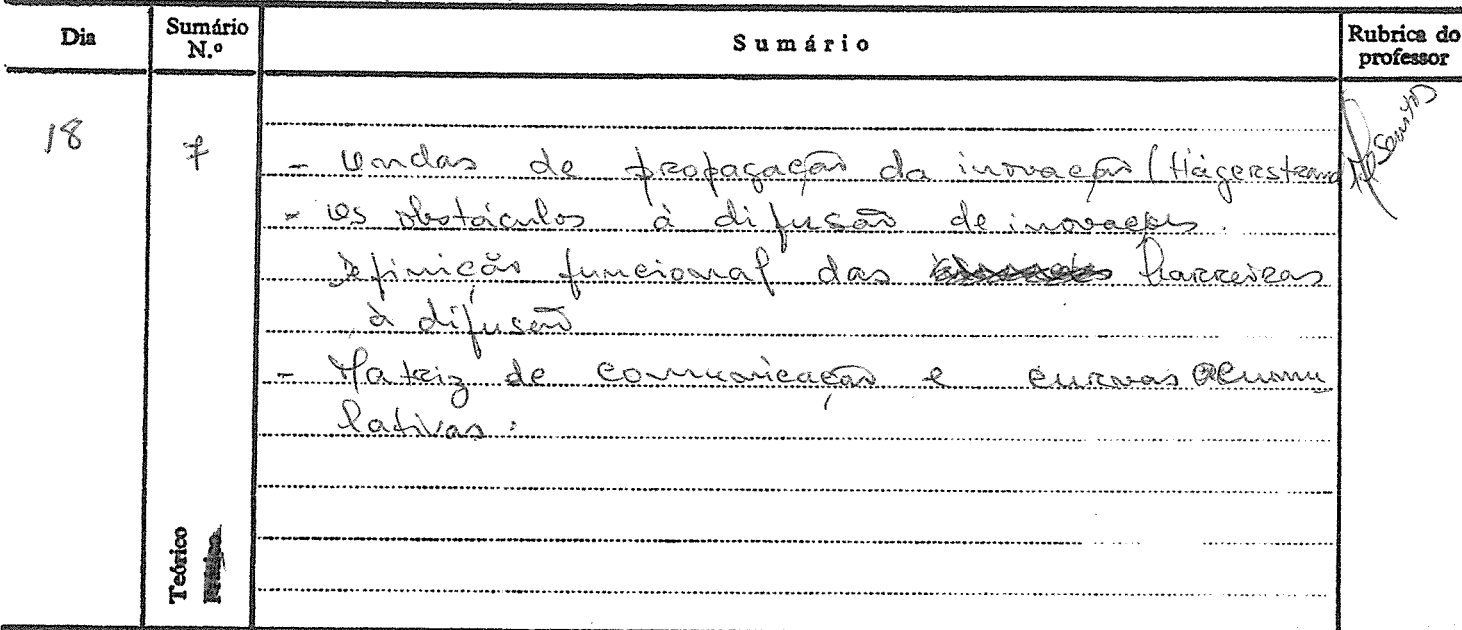 Dia Sumário N.º Sumário Rubrica do professor
18 7
- Ondas de propagação da inovação (Hägerstrand
- Os obstáculos à difusão de inovações.
Definição funcional das barreiras
à difusão
- Matriz de comunicação e curvas acumu
lativas.
Teórico